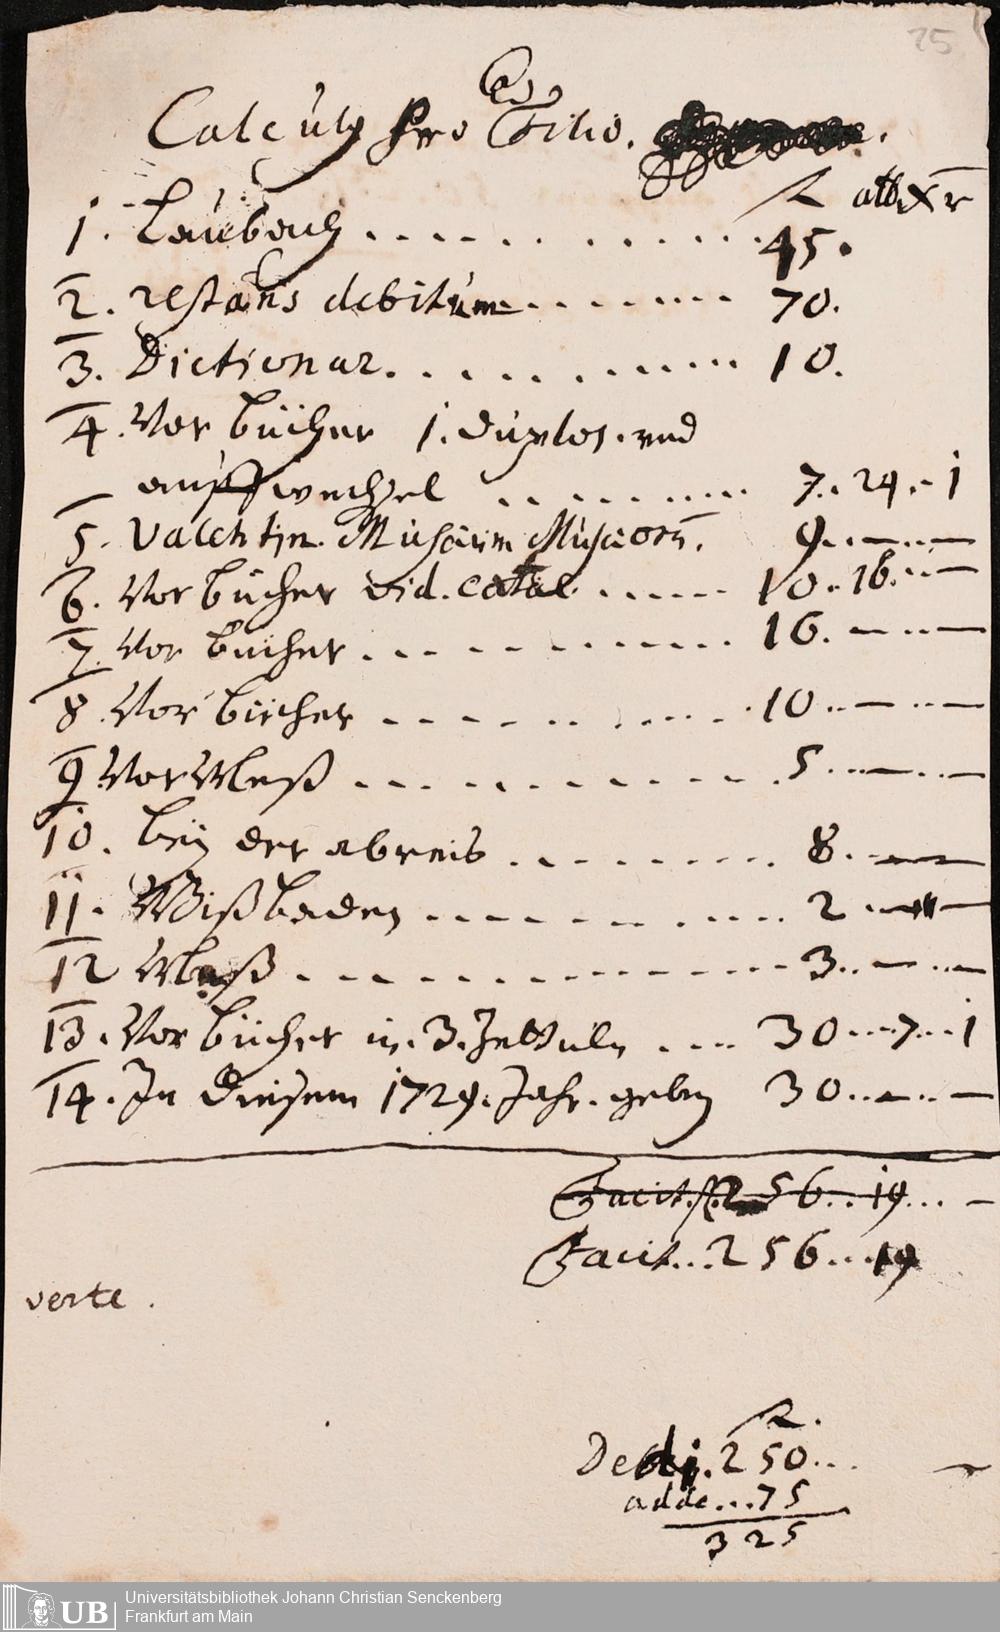 25
Calculg pro filio.
fl alb xr
1. Laubach . . . . . . . . . . 45.
2. restans debitum . . . . . . . 70.
3. Dictionar. . . . . . . . . . . 10.
4. Vor bücher 1. duplos. und
auffwechsel . . . . . . . . 7. . 24. - 1
5. Valentin. Musæum Musæorū. 9. . — . —
6. Vor bücher vid. catal. . . . . . 10. . 16. . . —
7. Vor bücher . . . . . . . . . . 16. — . . —
8. Vor bücher . . . . . . . . . . 10 . . — . . —
9. Vor Meß . . . . . . . . . . . 5 . . . — . . —
10. bey der abreis . . . . . . . . 8. . —
11. Wißbaden . . . . . . . . . . 2 . — —
12 Meß . . . . . . . . . . . . . 3. . — . . . —
13. Vor bücher in. 3. Zettuln . . . . 30 . . . 7 . . . 1
14. In diesem 1729. Jahr. geben 30 . . — . . —
Facit. fl. 256. . . 19 . . . —
Facit . . . 256 . . . 19
verte .
fl.
Dedi. 250 . . . —
adde . . . 75
325
Universitätsbibliothek Johann Christian Senckenberg
UB Frankfurt am Main